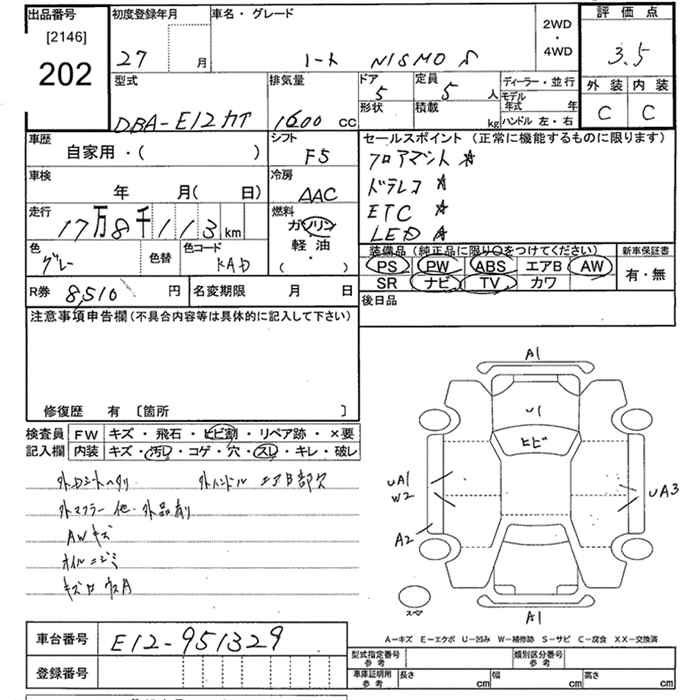 出品番号
[2146]
202
初度登録年月
27 月
車名・グレード
ノート NISMO S
2WD
・
4WD
評価点
3.5
外装 内装
C C
型式
DBA-E12カイ
排気量
1600 cc
ドア
5
形状
定員
5 人
積載
kg
ディーラー・並行
モデル年式 年
ハンドル 左・右
車歴
自家用・( )
シフト
F5
車検
年 月( 日)
冷房
AAC
走行
17万8千113km
燃料
ガソリン
軽油
( ・ )
色
グレー
色替
色コード
KAD
R券 8,510 円
名変期限 月 日
セールスポイント(正常に機能するものに限ります)
フロアマット ☆
ドラレコ ☆
ETC ☆
LED ☆
装備品(純正品に限り○をつけてください)
PS PW ABS エアB AW
SR ナビ TV カワ
新車保証書
有・無
後日品
注意事項申告欄(不具合内容等は具体的に記入して下さい)
修復歴 有 〔箇所 〕
検査員記入欄
FW キズ・飛石・ヒビ割・リペア跡・×要
内装 キズ・汚レ・コゲ・穴・スレ・キレ・破レ
外Dシートヘタリ 外ハンドル エアB部欠
外マフラー他 外品有り
AWキズ
オイルニジミ
キズ凹 ウスA
A1
U1
ヒビ
UA1
W2
A2
UA3
スペア
A1
A-キズ E-エクボ U-凹み W-補修跡 S-サビ C-腐食 XX-交換済
車台番号 E12-951329
登録番号
型式指定番号 参考
類別区分番号 参考
車庫証明用 参考 長さ cm 幅 cm 高さ cm